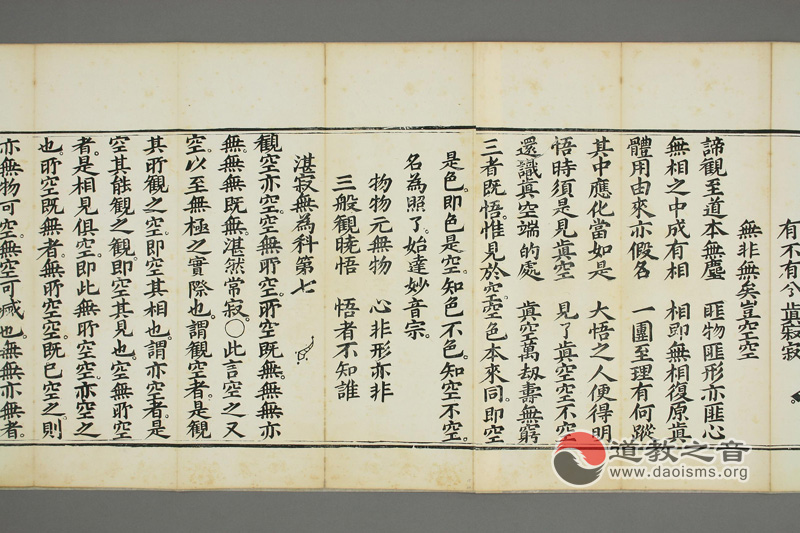 有不有兮眞寂寂
無非無矣豈空空
諦觀至道本無塵　匪物匪形亦匪心
無相之中成有相　相即無相復原眞
體用由來亦假名　一團至理有何蹤
其中應化當如是　大悟之人便得明
悟時須是見眞空　見了眞空空不空
還識眞空端的處　眞空萬劫壽無窮
三者既悟。惟見於空。空色本來同。即空
是色。即色是空。知色不色。知空不空。
名為照了。始達妙音宗。
物物元無物　心非形亦非
三般觀曉悟　悟者不知誰
湛寂無為科第七
觀空亦空。空無所空。所空既無。無無亦
無。無無既無。湛然常寂。○此言空之又
空。以至無極之實際也。謂觀空者。是觀
其所觀之空。即空其相也。謂亦空者。是
空其能觀之觀。即空其見也。空無所空
者。是相見俱空。即此無所空空。亦空之
也。所空既無者。無所空空。既已空之。則
亦無物可空。無空可滅也。無無亦無者。
道教之音
www.daoisms.org